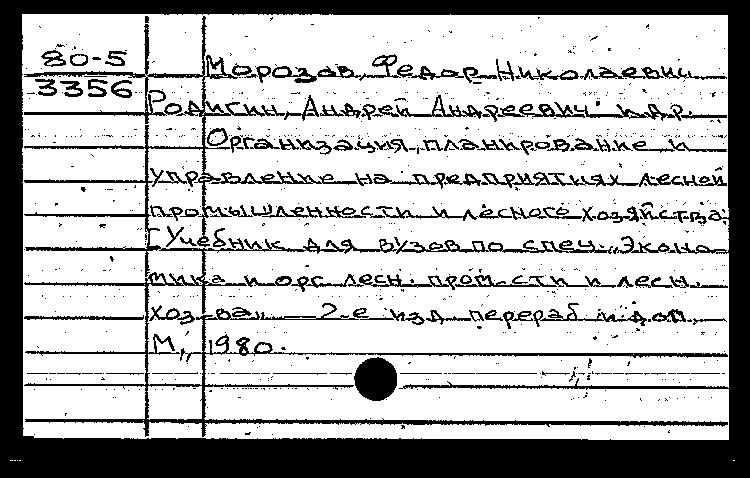 80-5
3356
Морозов, Федор Николаевич
Родигин, Андрей Андреевич и др.
Организация, планирование и
управление на предприятиях лесной
промышленности и лесного хозяйства.
[Учебник для вузов по спец. „Эконо-
мика и орг. лесн. пром-сти и лесн.
хоз-ва„ — 2-е изд. перераб и доп.
М„ 1980.